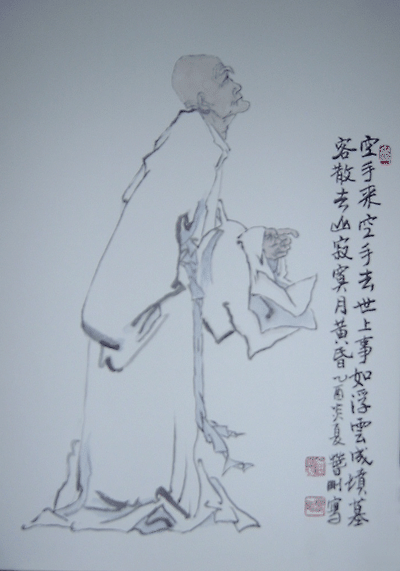 空手来空手去世上事如浮雲成墳墓
客散去山寂寞月黄昏乙酉炎夏晉刚寫